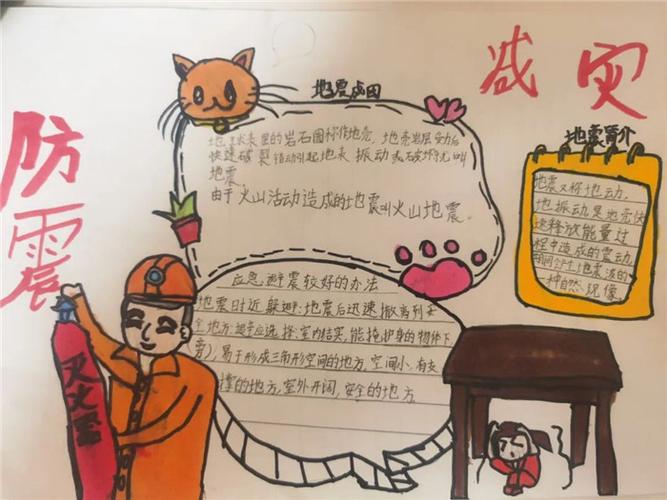 防震
减灾
地震成因
地球表里的岩石圈称作地壳，地壳岩层受力后
快速破裂错动引起地表振动或破坏就叫
地震。
由于火山活动造成的地震叫火山地震。
地震简介
地震又称地动，
地振动是地壳快
速释放能量过
程中造成的震动，
期间会产生地震波的
一种自然现像。
应急避震较好的办法
地震时近躲避:地震后迅速撤离到安
全地方.避震应选择:室内结实,能掩护身的物体下
旁),易于形成三角形空间的地方,空间小,有支
撑的地方,室外开阔,安全的地方
灭火器